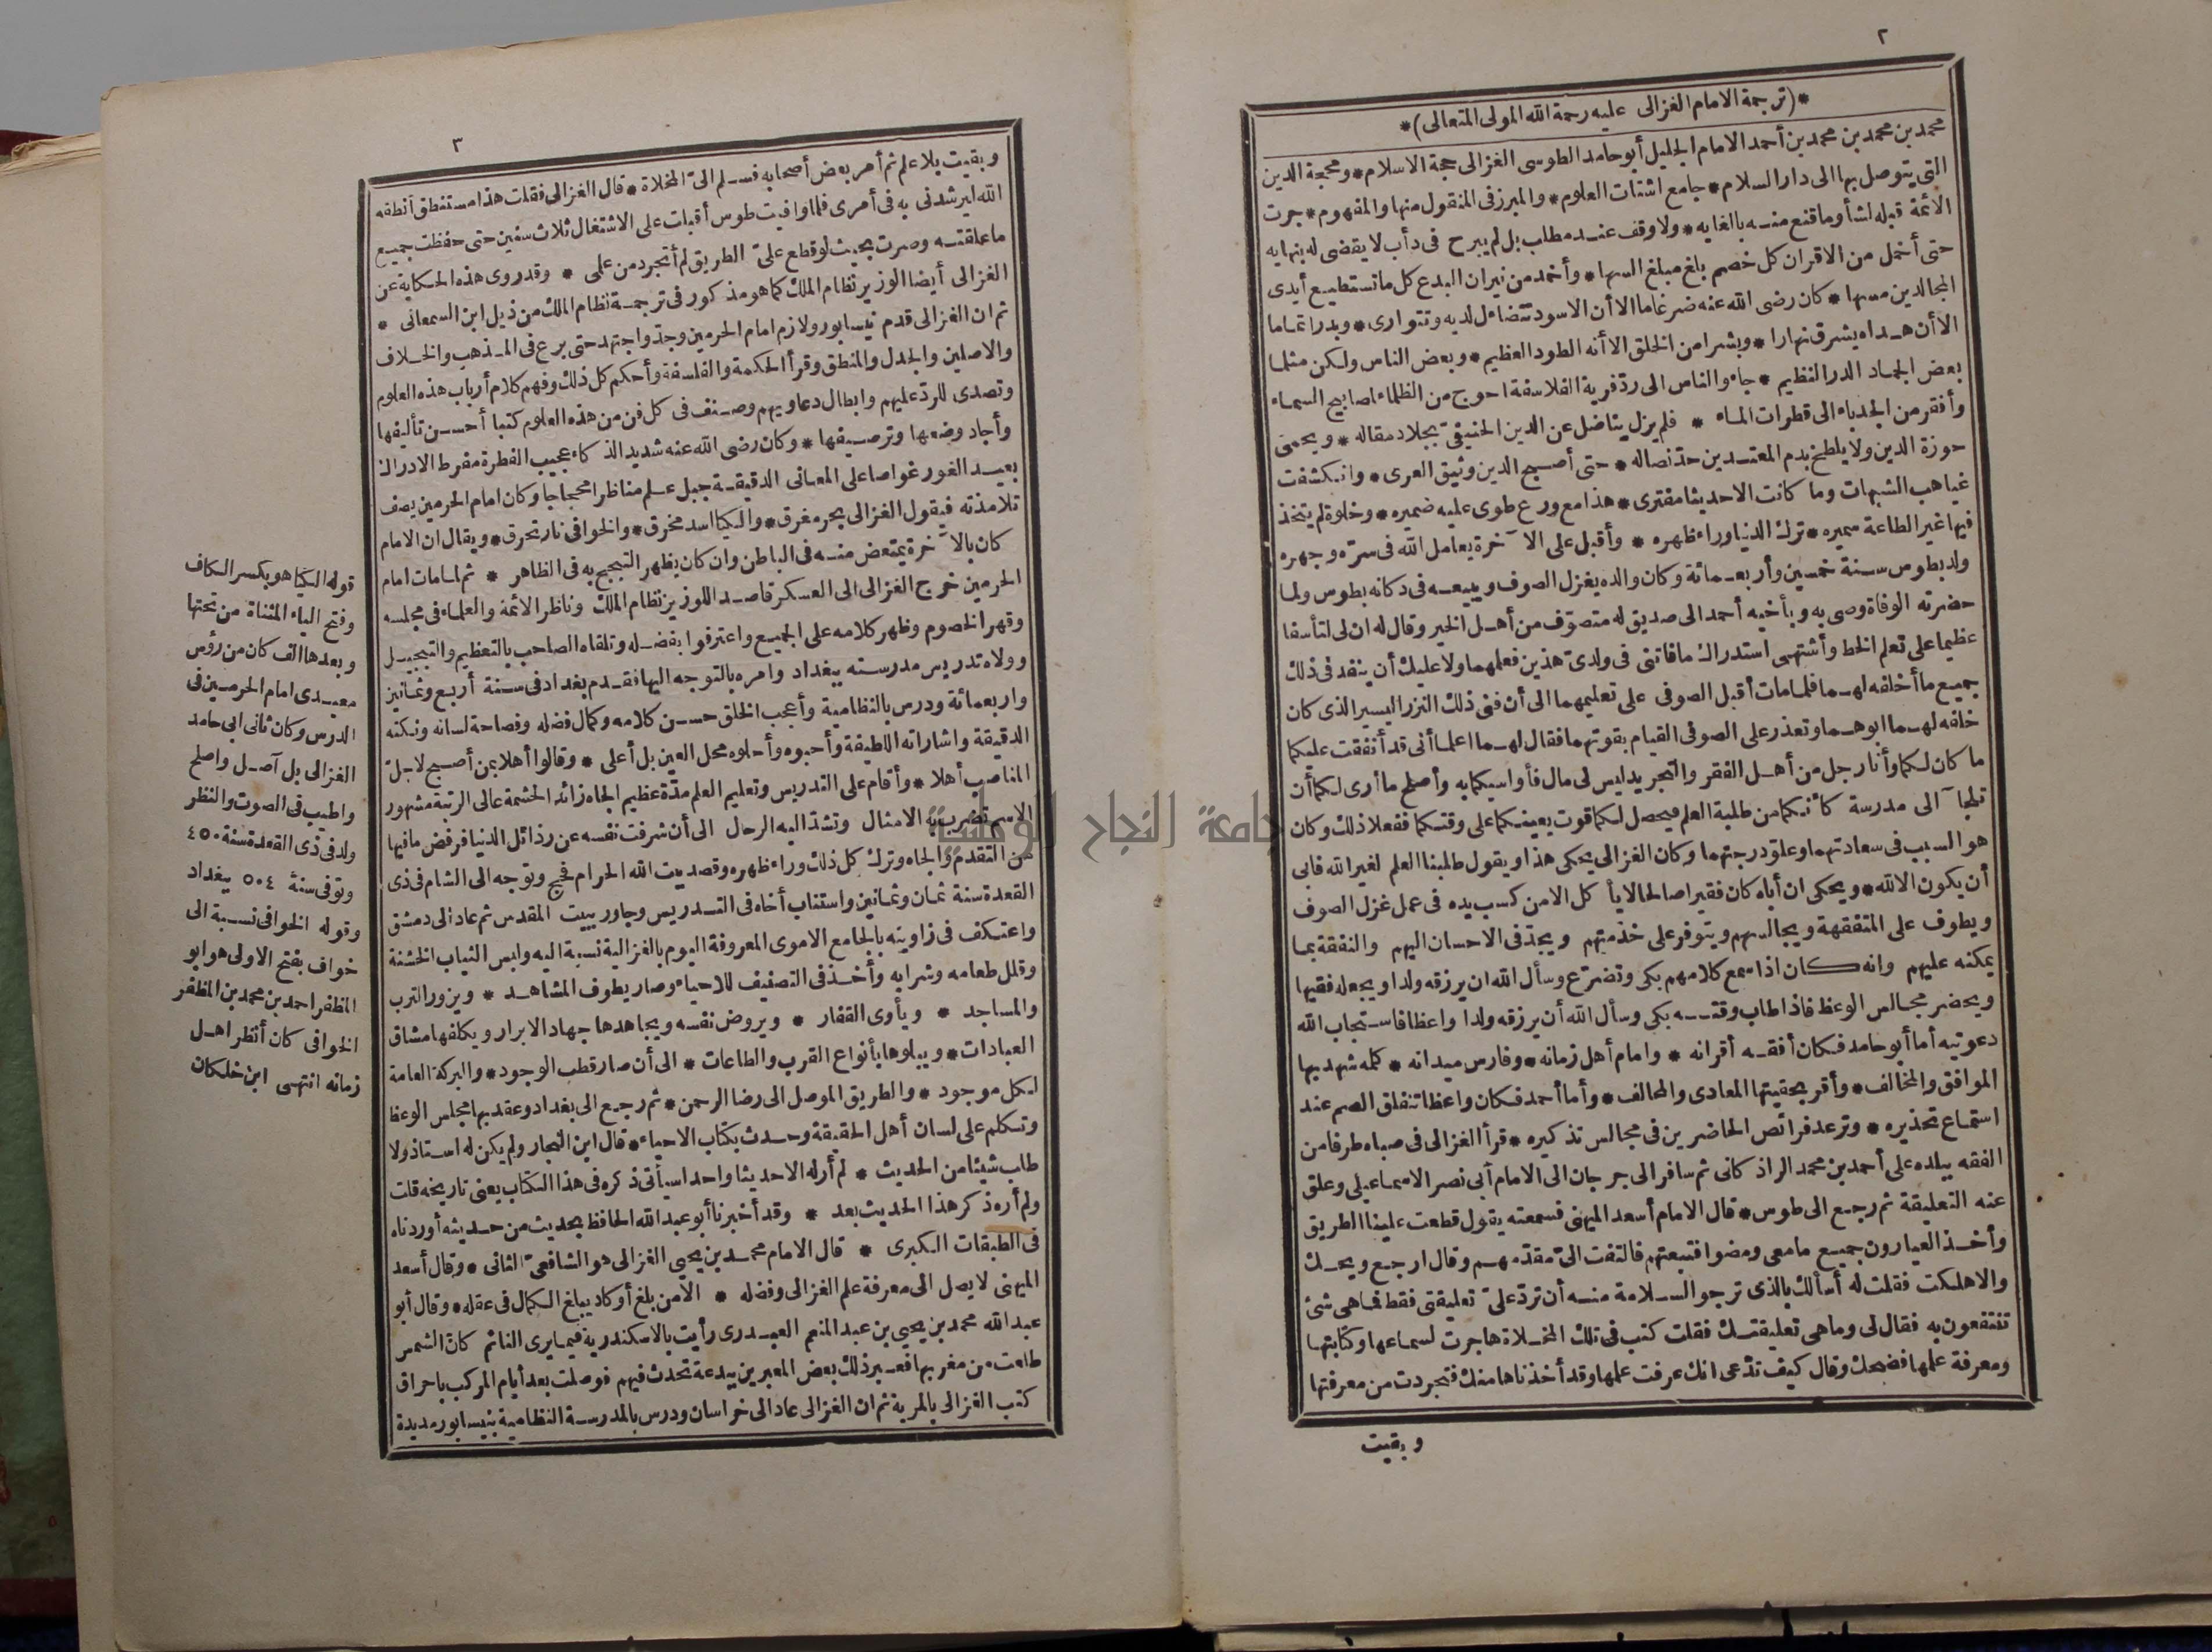 ٢
*(ترجمة الامام الغزالى عليه رحمة الله المولى المتعالى)*
محمد بن محمد بن محمد بن أحمد الامام الجليل أبو حامد الطوسى الغزالى حجة الاسلام * ومحجة الدين
التى يتوصل بها الى دار السلام * جامع اشتات العلوم * والمبرز فى المنقول منها والمفهوم * جرت
الائمة قبله لشأو ما قنع منه بالغايه * ولا وقف عند مطلب بل لم يبرح فى دأب لا يقضى له بنهايه
حتى أخمل من الاقران كل خصم بلغ مبلغ السها * وأخمد من نيران البدع كل ما تستطيع أيدى
المجالدين مسها * كان رضى الله عنه ضرغاما الا أن الاسود تتضاءل لديه وتتوارى * وبدرا تماما
الا أن هداه يشرق نهارا * وبشرا من الخلق الا أنه الطود العظيم * وبعض الناس ولكن مثلما
بعض الجماد الدر النظيم * جاء والناس الى رد فرية الفلاسفة احوج من الظلماء لمصابيح السماء
وأفقر من الجدباء الى قطرات الماء * فلم يزل يناضل عن الدين الحنيفىّ بجلاد مقاله * ويحمى
حوزة الدين ولا يلطخ بدم المعتدين حدّ نصاله * حتى أصبح الدين وثيق العرى * وانكشفت
غياهب الشبهات وما كانت الا حديثا مفترى * هذا مع ورع طوى عليه ضميره * وخلوة لم يتخذ
فيها غير الطاعة سميره * ترك الدنيا وراء ظهره * وأقبل على الآخرة يعامل الله فى سرّه وجهره
ولد بطوس سنة خمسين وأربعمائة وكان والده يغزل الصوف ويبيعه فى دكانه بطوس ولما
حضرته الوفاة وصى به وبأخيه أحمد الى صديق له متصوّف من أهل الخير وقال له ان لى لتأسفا
عظيما على تعلم الخط وأشتهى استدراك ما فاتنى فى ولدىّ هذين فعلمهما ولا عليك أن ينفد فى ذلك
جميع ما أخلفه لهما فلما مات أقبل الصوفى على تعليمهما الى أن فنى ذلك النزر اليسير الذى كان
خلفه لهما ابوهما وتعذر على الصوفى القيام بقوتهما فقال لهما اعلما أنى قد أنفقت عليكما
ما كان لكما وأنا رجل من أهل الفقر والتجريد ليس لى مال فأواسيكما به وأصلح ما أرى لكما أن
تلجآ الى مدرسة كأنكما من طلبة العلم فيحصل لكما قوت يعينكما على وقتكما ففعلا ذلك وكان
هو السبب فى سعادتهما وعلوّ درجتهما وكان الغزالى يحكى هذا ويقول طلبنا العلم لغير الله فابى
أن يكون الا لله * ويحكى ان أباه كان فقيرا صالحا لا يأكل الا من كسب يده فى عمل غزل الصوف
ويطوف على المتفقهة ويجالسهم ويتوفر على خدمتهم ويجدّ فى الاحسان اليهم والنفقة بما
يمكنه عليهم وانه كان اذا سمع كلامهم بكى وتضرّع وسأل الله ان يرزقه ولدا ويجعله فقيها
ويحضر مجالس الوعظ فاذا طاب وقته بكى وسأل الله أن يرزقه ولدا واعظا فاستجاب الله
دعوتيه أما أبو حامد فكان أفقه أقرانه * وامام أهل زمانه * وفارس ميدانه * كلمه شهد بها
الموافق والمخالف * وأقر بحقيتها المعادى والمحالف * وأما أحمد فكان واعظا تنفلق الصم عند
استماع تحذيره * وترعد فرائص الحاضرين فى مجالس تذكيره * قرأ الغزالى فى صباه طرفا من
الفقه ببلده على أحمد بن محمد الراذكانى ثم سافر الى جرجان الى الامام أبى نصر الاسماعيلى وعلق
عنه التعليقة ثم رجع الى طوس * قال الامام أسعد الميهنى فسمعته يقول قطعت علينا الطريق
وأخذ العيارون جميع ما معى ومضوا فتبعتهم فالتفت الىّ مقدّمهم وقال ارجع ويحك
والا هلكت فقلت له أسألك بالذى ترجو السلامة منه أن تردّ علىّ تعليقتى فقط فما هى شئ
تنتفعون به فقال لى وما هى تعليقتك فقلت كتب فى تلك المخلاة هاجرت لسماعها وكتابتها
ومعرفة علمها فضحك وقال كيف تدّعى انك عرفت علمها وقد أخذناها منك فتجردت من معرفتها
وبقيت
٣
وبقيت بلا علم ثم أمر بعض أصحابه فسلم الىّ المخلاة * قال الغزالى فقلت هذا مستنطق أنطقه
الله ليرشدنى به فى أمرى فلما وافيت طوس أقبلت على الاشتغال ثلاث سنين حتى حفظت جميع
ما علقته وصرت بحيث لو قطع علىّ الطريق لم أتجرد من علمى * وقد روى هذه الحكاية عن
الغزالى أيضا الوزير نظام الملك كما هو مذكور فى ترجمة نظام الملك من ذيل ابن السمعانى *
ثم ان الغزالى قدم نيسابور ولازم امام الحرمين وجدّ واجتهد حتى برع فى المذهب والخلاف
والاصلين والجدل والمنطق وقرأ الحكمة والفلسفة وأحكم كل ذلك وفهم كلام أرباب هذه العلوم
وتصدى للردّ عليهم وابطال دعاويهم وصنف فى كل فن من هذه العلوم كتبا أحسن تأليفها
وأجاد وضعها وترصيفها * وكان رضى الله عنه شديد الذكاء عجيب الفطرة مفرط الادراك
بعيد الغور غواصا على المعانى الدقيقة جبل علم مناظرا محجاجا وكان امام الحرمين يصف
تلامذته فيقول الغزالى بحر مغرق * والكيا اسد مخرق * والخوافى نار تحرق * ويقال ان الامام
كان بالآخرة يمتعض منه فى الباطن وان كان يظهر التبجح به فى الظاهر * ثم لما مات امام
الحرمين خرج الغزالى الى العسكر قاصدا للوزير نظام الملك وناظر الائمة والعلماء فى مجلسه
وقهر الخصوم وظهر كلامه على الجميع واعترفوا بفضله وتلقاه الصاحب بالتعظيم والتبجيل
وولاه تدريس مدرسته ببغداد وامره بالتوجه اليها فقدم بغداد فى سنة أربع وثمانين
واربعمائة ودرس بالنظامية وأعجب الخلق حسن كلامه وكمال فضله وفصاحة لسانه ونكته
الدقيقة واشاراته اللطيفة وأحبوه وأحلوه محل العين بل أعلى * وقالوا أهلا بمن أصبح لاجلّ
المناصب أهلا * وأقام على التدريس وتعليم العلم مدّة عظيم الجاه زائد الحشمة عالى الرتبة مشهور
الاسم تضرب به الامثال وتشدّ اليه الرحال الى أن شرفت نفسه عن رذائل الدنيا فرفض ما فيها
من التقدم والجاه وترك كل ذلك وراء ظهره وقصد بيت الله الحرام فحج وتوجه الى الشام فى ذى
القعدة سنة ثمان وثمانين واستناب أخاه فى التدريس وجاور ببيت المقدس ثم عاد الى دمشق
واعتكف فى زاويته بالجامع الاموى المعروفة اليوم بالغزالية نسبة اليه ولبس الثياب الخشنة
وقلل طعامه وشرابه وأخذ فى التصنيف للاحياء وصار يطوف المشاهد * ويزور الترب
والمساجد * ويأوى القفار * ويروض نفسه ويجاهدها جهاد الابرار ويكلفها مشاق
العبادات * ويبلوها بأنواع القرب والطاعات * الى أن صار قطب الوجود * والبركة العامة
لكل موجود * والطريق الموصل الى رضا الرحمن * ثم رجع الى بغداد وعقد بها مجلس الوعظ
وتكلم على لسان أهل الحقيقة وحدث بكتاب الاحياء * قال ابن النجار ولم يكن له استاذ ولا
طلب شيئا من الحديث * لم أر له الا حديثا واحدا سيأتى ذكره فى هذا الكتاب يعنى تاريخه قلت
ولم أره ذكر هذا الحديث بعد * وقد أخبرنا أبو عبد الله الحافظ بحديث من حديثه أوردناه
فى الطبقات الكبرى * قال الامام محمد بن يحيى الغزالى هو الشافعىّ الثانى * وقال أسعد
الميهنى لا يصل الى معرفة علم الغزالى وفضله * الا من بلغ أو كاد يبلغ الكمال فى عقله * وقال أبو
عبد الله محمد بن يحيى بن عبد المنعم العبدرى رأيت بالاسكندرية فيما يرى النائم كان الشمس
طلعت من مغربها فعبر ذلك بعض المعبرين ببدعة تحدث فيهم فوصلت بعد أيام المركب باحراق
كتب الغزالى بالمرية ثم ان الغزالى عاد الى خراسان ودرس بالمدرسة النظامية بنيسابور مديدة
قوله الكيا هو بكسر الكاف
وفتح الياء المثناة من تحتها
وبعدها الف كان من رؤس
معيدى امام الحرمين فى
الدرس وكان ثانى ابى حامد
الغزالى بل آصل واصلح
واطيب فى الصوت والنظر
ولد فى ذى القعدة سنة ٤٥٠
وتوفى سنة ٥٠٤ ببغداد
وقوله الخوافى نسبة الى
خواف بفتح الاولى هو ابو
المظفر احمد بن محمد بن المظفر
الخوافى كان أنظر اهل
زمانه انتهى ابن خلكان
جامعة النجاح الوطنية